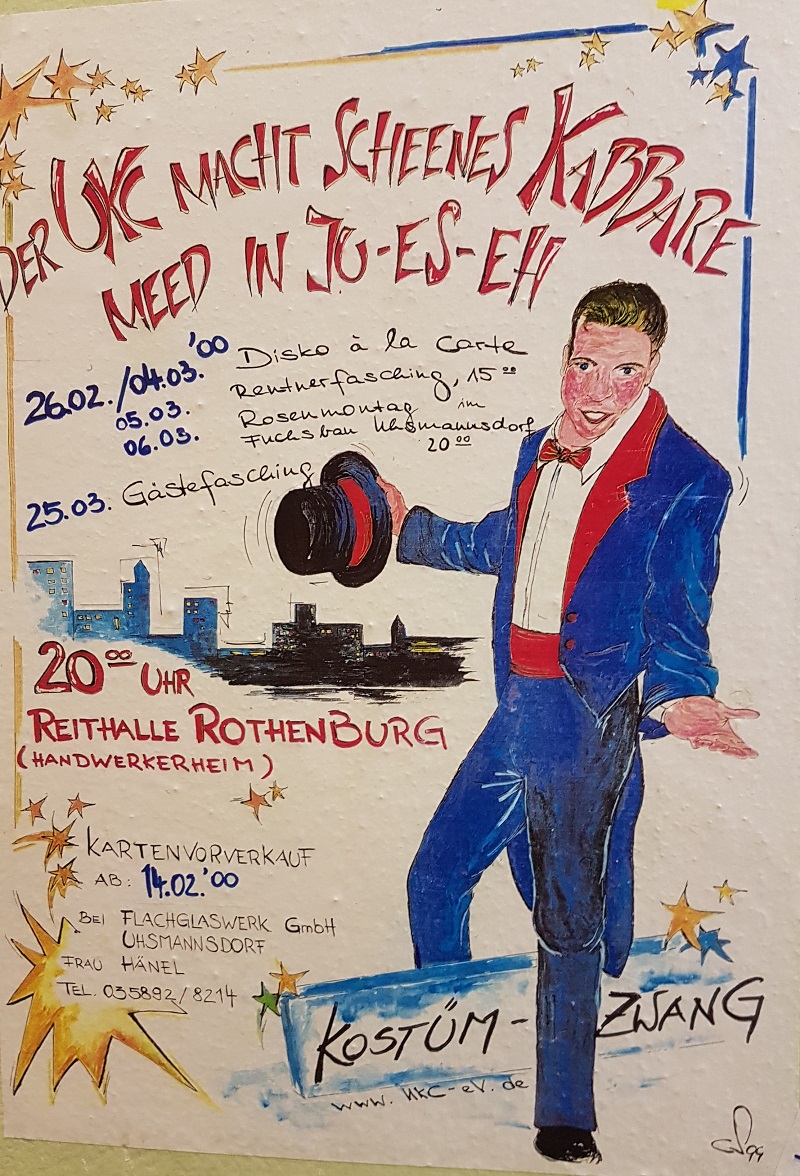 DER UKC MACHT SCHEENES KABBARE
MEED IN JU-ES-EH
26.02./04.03.'00 Disko à la carte
05.03. Rentnerfasching, 15⁰⁰
06.03. Rosenmontag im
Fuchsbau Uhsmannsdorf
20⁰⁰
25.03. Gästefasching
20⁰⁰ UHR
REITHALLE ROTHENBURG
(HANDWERKERHEIM)
KARTENVORVERKAUF
AB: 14.02.'00
BEI FLACHGLASWERK GmbH
UHSMANNSDORF
FRAU HÄNEL
TEL. 035892/8214
KOSTÜM-ZWANG
www.UKC-eV.de
99